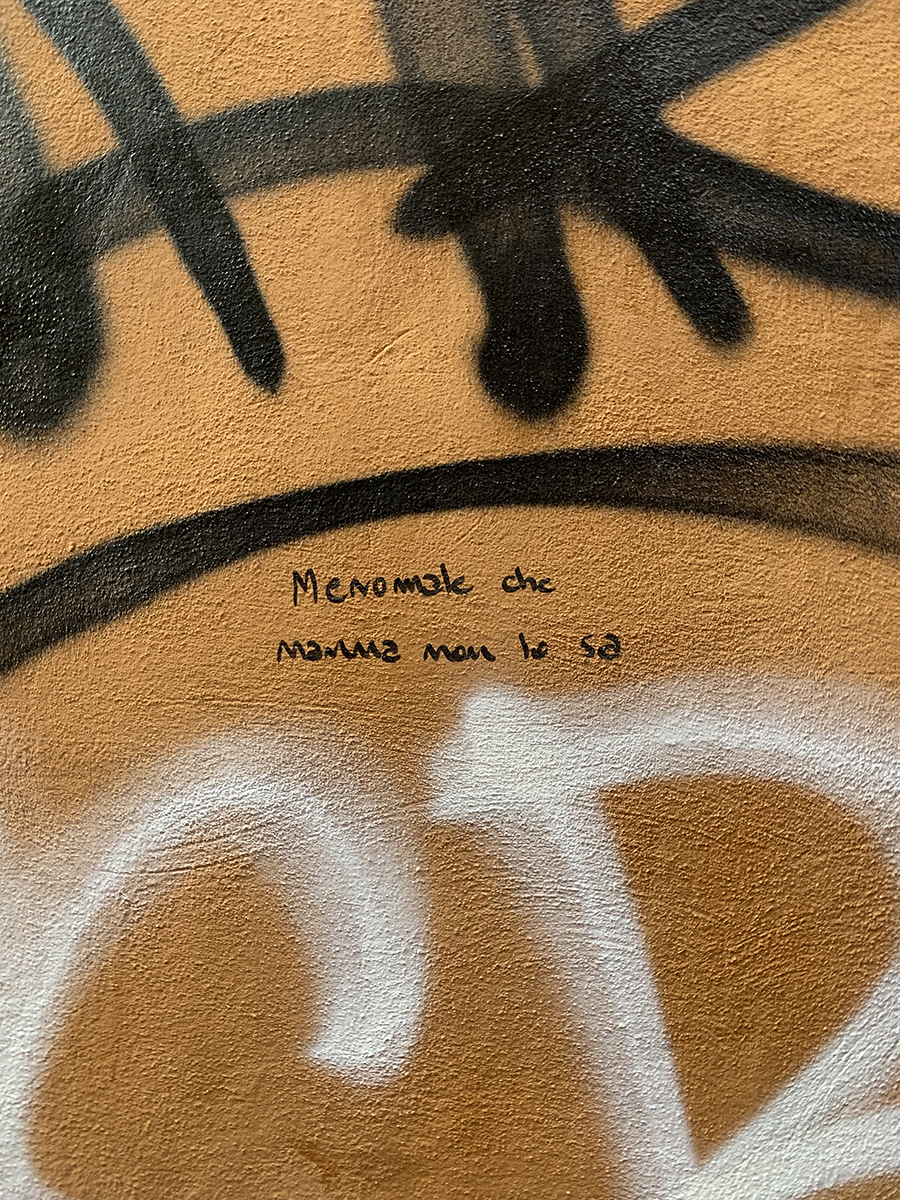 Menomale che
mamma non lo sa